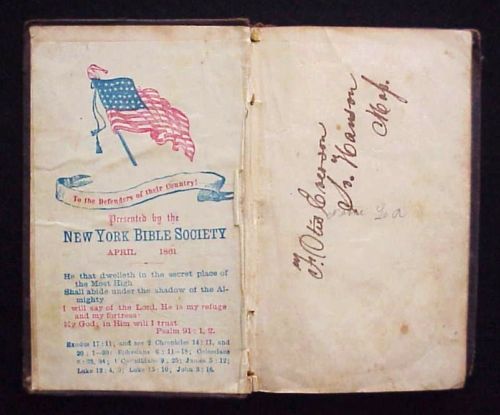 To the Defenders of their Country!
Presented by the
NEW YORK BIBLE SOCIETY
APRIL 1861
He that dwelleth in the secret place of
the Most High
Shall abide under the shadow of the Al-
mighty
I will say of the Lord, He is my refuge
and my fortress:
My God; in Him will I trust
Psalm 91: 1, 2.
Exodus 17: 11; and see 2 Chronicles 14: 11, and
20; 1—30; Ephesians 6; 11—18; Colossians
1 Corinthians 9; 25; James 5; 12;
Luke 12: 4, 9; Luke 15: 10; John 3: 16.
Otis
So. Hanson